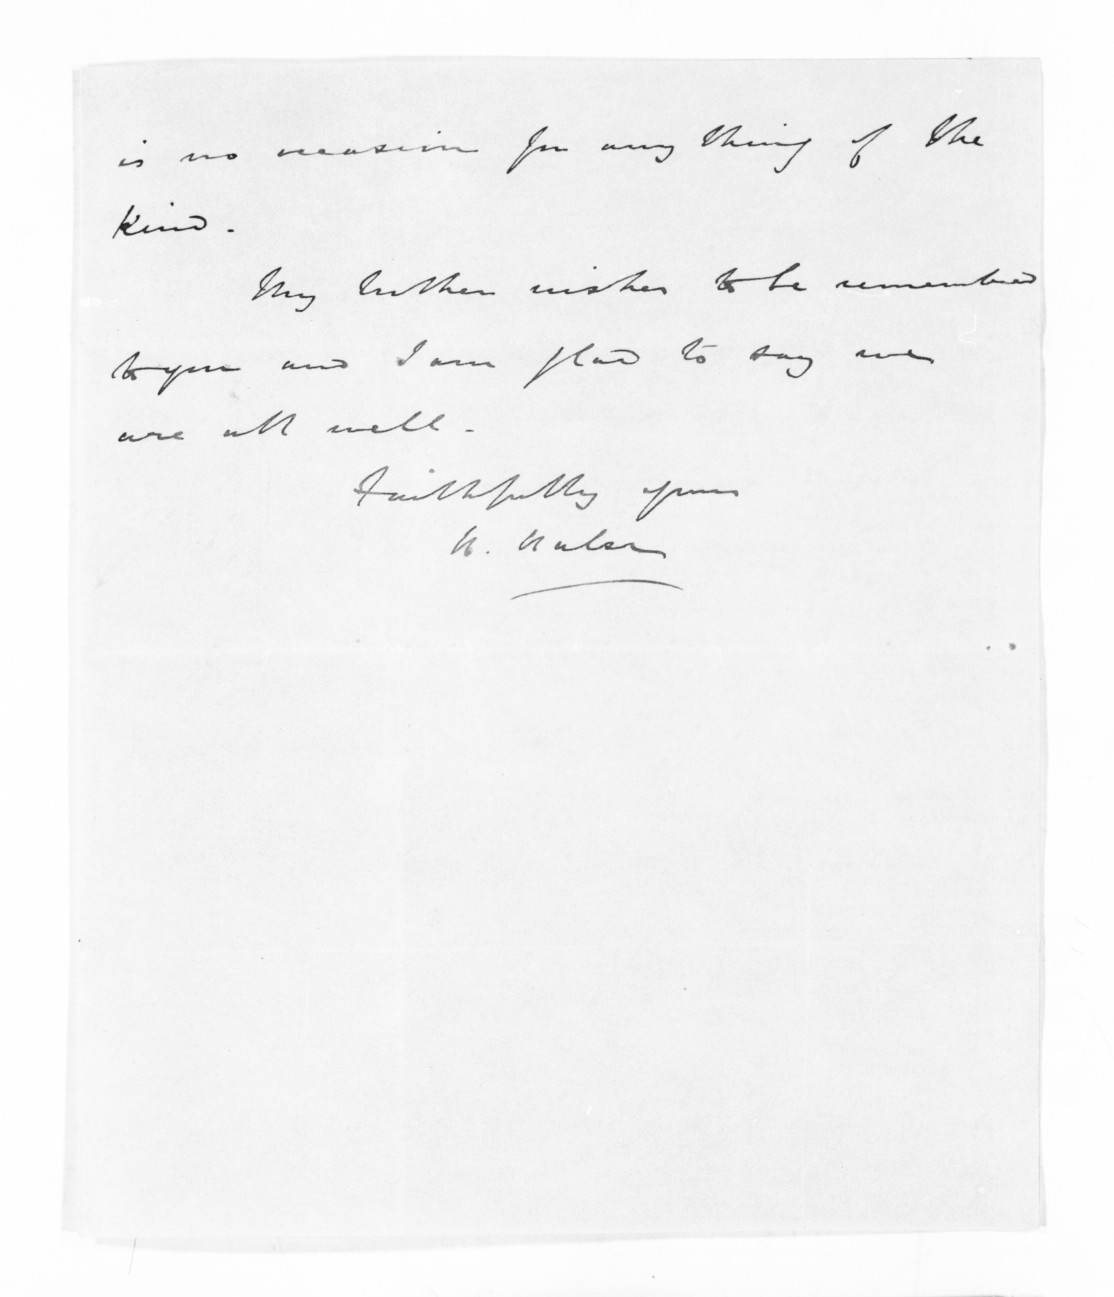 is no occasion for any thing of the
kind.
My Mother wishes to be remembered
to you and I am glad to say we
are all well.
Faithfully yours